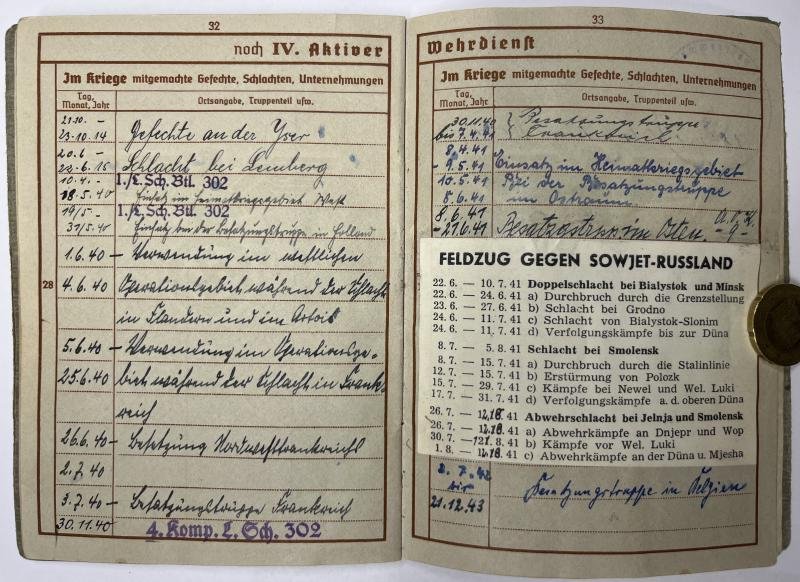 32
noch IV. Aktiver
Im Kriege mitgemachte Gefechte, Schlachten, Unternehmungen
Tag, Monat, Jahr
Ortsangabe, Truppenteil usw.
21.10. -
23.10.14 Gefechte an der Yser
20.6 -
22.6.15 Schlacht bei Lemberg
10.4. - I./L. Sch. Btl. 302
18.5.40 Einsatz im Heimatkriegsgebiet West
19/5 - I./L. Sch. Btl. 302
31/5.40 Einsatz bei der Besatzungstruppe in Holland
1.6.40 - Verwendung im westlichen
28
4.6.40 Operationsgebiet während der Schlacht
in Flandern und im Artois
5.6.40 - Verwendung im Operationsge-
25.6.40 biet während der Schlacht in Frank-
reich
26.6.40 - Besetzung Nordwestfrankreichs
2.7.40
3.7.40 - Besatzungstruppe Frankreich
30.11.40
4. Komp. L. Sch. 302
33
Wehrdienst
Im Kriege mitgemachte Gefechte, Schlachten, Unternehmungen
Tag, Monat, Jahr
Ortsangabe, Truppenteil usw.
30.11.40 } Besatzungstruppe
bis 7.4.41 } Frankreich.
8.4.41
- 9.5.41 Einsatz im Heimatkriegsgebiet
10.5.41 Bei der Besatzungstruppe
8.6.41 im Ostraum
8.6.41
-21.6.41 Besatzgstrup. im Osten. -9-
FELDZUG GEGEN SOWJET-RUSSLAND
22. 6. — 10. 7. 41 Doppelschlacht bei Bialystok und Minsk
22. 6. — 24. 6. 41 a) Durchbruch durch die Grenzstellung
23. 6. — 27. 6. 41 b) Schlacht bei Grodno
24. 6. — 11. 7. 41 c) Schlacht von Bialystok-Slonim
24. 6. — 11. 7. 41 d) Verfolgungskämpfe bis zur Düna
8. 7. — 5. 8. 41 Schlacht bei Smolensk
8. 7. — 15. 7. 41 a) Durchbruch durch die Stalinlinie
12. 7. — 15. 7. 41 b) Erstürmung von Polozk
15. 7. — 29. 7. 41 c) Kämpfe bei Newel und Wel. Luki
17. 7. — 31. 7. 41 d) Verfolgungskämpfe a. d. oberen Düna
26. 7. — 12.8. 41 Abwehrschlacht bei Jelnja und Smolensk
26. 7. — 12.8. 41 a) Abwehrkämpfe an Dnjepr und Wop
30. 7. — 12. 8. 41 b) Kämpfe vor Wel. Luki
1. 8. — 12.8. 41 c) Abwehrkämpfe an der Düna u. Mjesha
2.7.42
bis Besatzungstruppe in Belgien
21.12.43